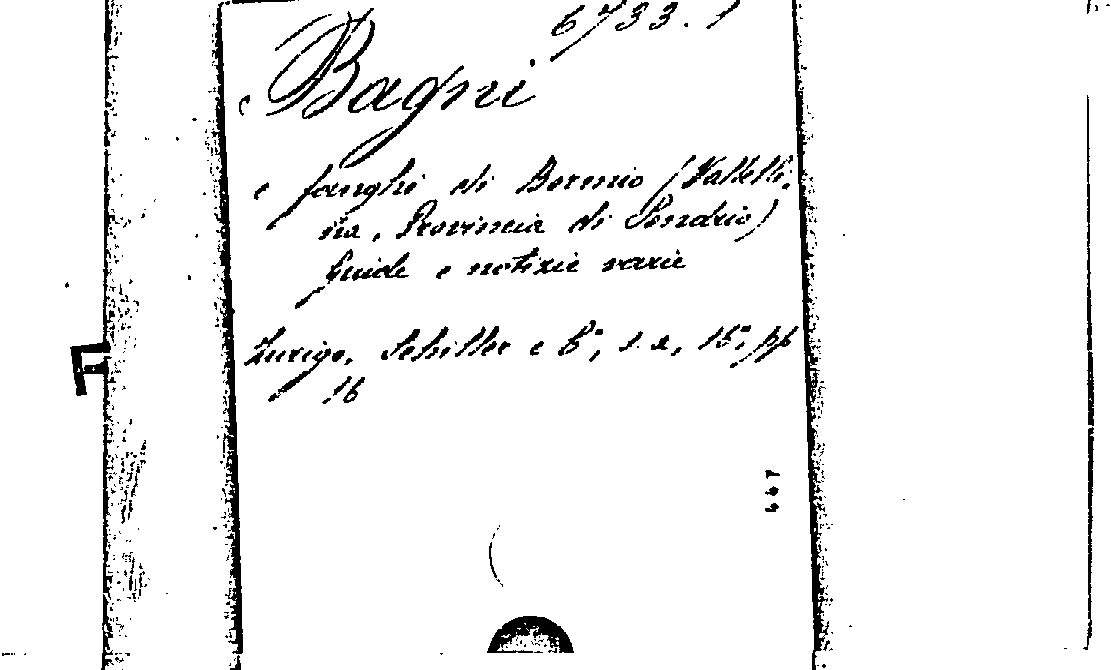 6733.1
Bagni
e fanghi di Bormio (Valtelli-
na, Provincia di Sondrio)
Guide e notizie varie
Zurigo, Schiller e C°, s. a, 16°, pp
16
447
F